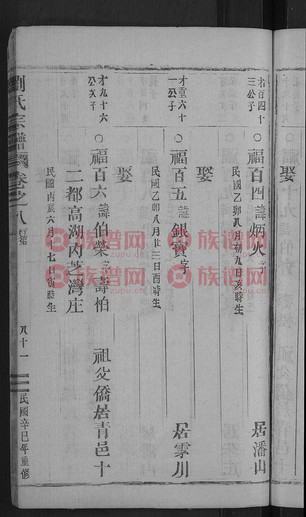 才百四十三公子
福百四諱炳火字
居潘山
民國乙卯八月初九日亥時生
娶
才重六十一公子
福百五諱銀寶字
居雲川
民國乙卯八月廿三日酉時生
娶
才九十六公次子
福百六諱伯榮字壽怕
祖父僑居青邑十
二都高湖內芝灣庄
民國丙辰六月十七日
時生
劉氏宗譜
卷之八
行第
八十一
民國辛巳年重修
族谱网